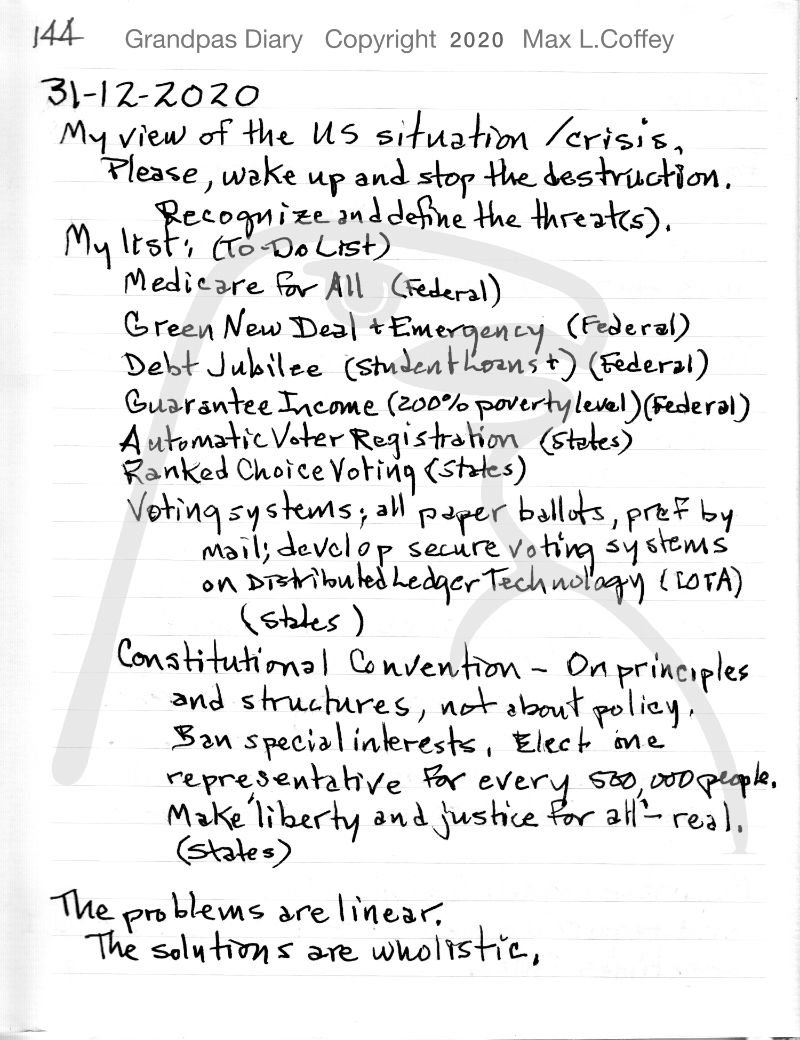 144 Grandpas Diary Copyright 2020 Max L.Coffey
31-12-2020
My view of the US situation /crisis.
Please, wake up and stop the destruction.
Recognize and define the threat(s).
My list: (To-Do List)
Medicare for All (Federal)
Green New Deal + Emergency (Federal)
Debt Jubilee (Student Loans +) (Federal)
Guarantee Income (200% poverty level) (Federal)
Automatic Voter Registration (States)
Ranked Choice Voting (States)
Voting systems; all paper ballots, pref by
mail; develop secure voting systems
on Distributed Ledger Technology (IOTA)
(States)
Constitutional Convention - On principles
and structures, not about policy.
Ban special interests. Elect one
representative for every 500,000 people.
Make "liberty and justice for all" - real.
(States)
The problems are linear.
The solutions are wholistic.